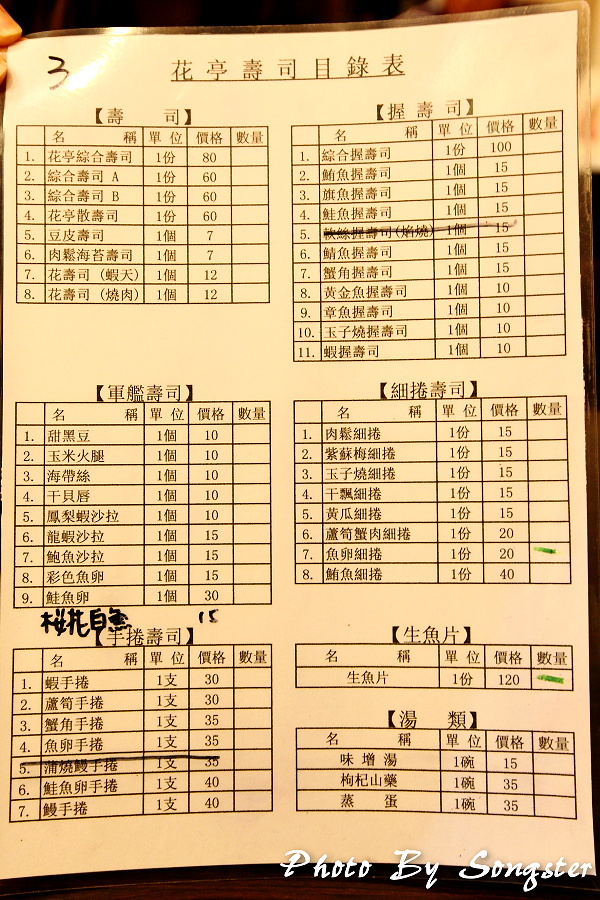 3
花亭壽司目錄表
【壽 司】
名 稱 單位 價格 數量
1. 花亭綜合壽司 1份 80
2. 綜合壽司 A 1份 60
3. 綜合壽司 B 1份 60
4. 花亭散壽司 1份 60
5. 豆皮壽司 1個 7
6. 肉鬆海苔壽司 1個 7
7. 花壽司 (蝦天) 1個 12
8. 花壽司 (燒肉) 1個 12
【握壽司】
名 稱 單位 價格 數量
1. 綜合握壽司 1份 100
2. 鮪魚握壽司 1個 15
3. 旗魚握壽司 1個 15
4. 鮭魚握壽司 1個 15
5. 軟絲握壽司(焰燒) 1個 15
6. 鯖魚握壽司 1個 15
7. 蟹角握壽司 1個 15
8. 黃金魚握壽司 1個 10
9. 章魚握壽司 1個 10
10. 玉子燒握壽司 1個 10
11. 蝦握壽司 1個 10
【軍艦壽司】
名 稱 單位 價格 數量
1. 甜黑豆 1個 10
2. 玉米火腿 1個 10
3. 海帶絲 1個 10
4. 干貝唇 1個 10
5. 鳳梨蝦沙拉 1個 10
6. 龍蝦沙拉 1個 15
7. 鮑魚沙拉 1個 15
8. 彩色魚卵 1個 15
9. 鮭魚卵 1個 30
櫻花白魚 15
【細捲壽司】
名 稱 單位 價格 數量
1. 肉鬆細捲 1份 15
2. 紫蘇梅細捲 1份 15
3. 玉子燒細捲 1份 15
4. 干飄細捲 1份 15
5. 黃瓜細捲 1份 15
6. 蘆筍蟹肉細捲 1份 20
7. 魚卵細捲 1份 20
8. 鮪魚細捲 1份 40
【手捲壽司】
名 稱 單位 價格 數量
1. 蝦手捲 1支 30
2. 蘆筍手捲 1支 30
3. 蟹角手捲 1支 35
4. 魚卵手捲 1支 35
5. 蒲燒鰻手捲 1支 35
6. 鮭魚卵手捲 1支 40
7. 鰻手捲 1支 40
【生魚片】
名 稱 單位 價格 數量
生魚片 1份 120
【湯 類】
名 稱 單位 價格 數量
味增湯 1碗 15
枸杞山藥 1碗 35
蒸 蛋 1碗 35
Photo By Songster